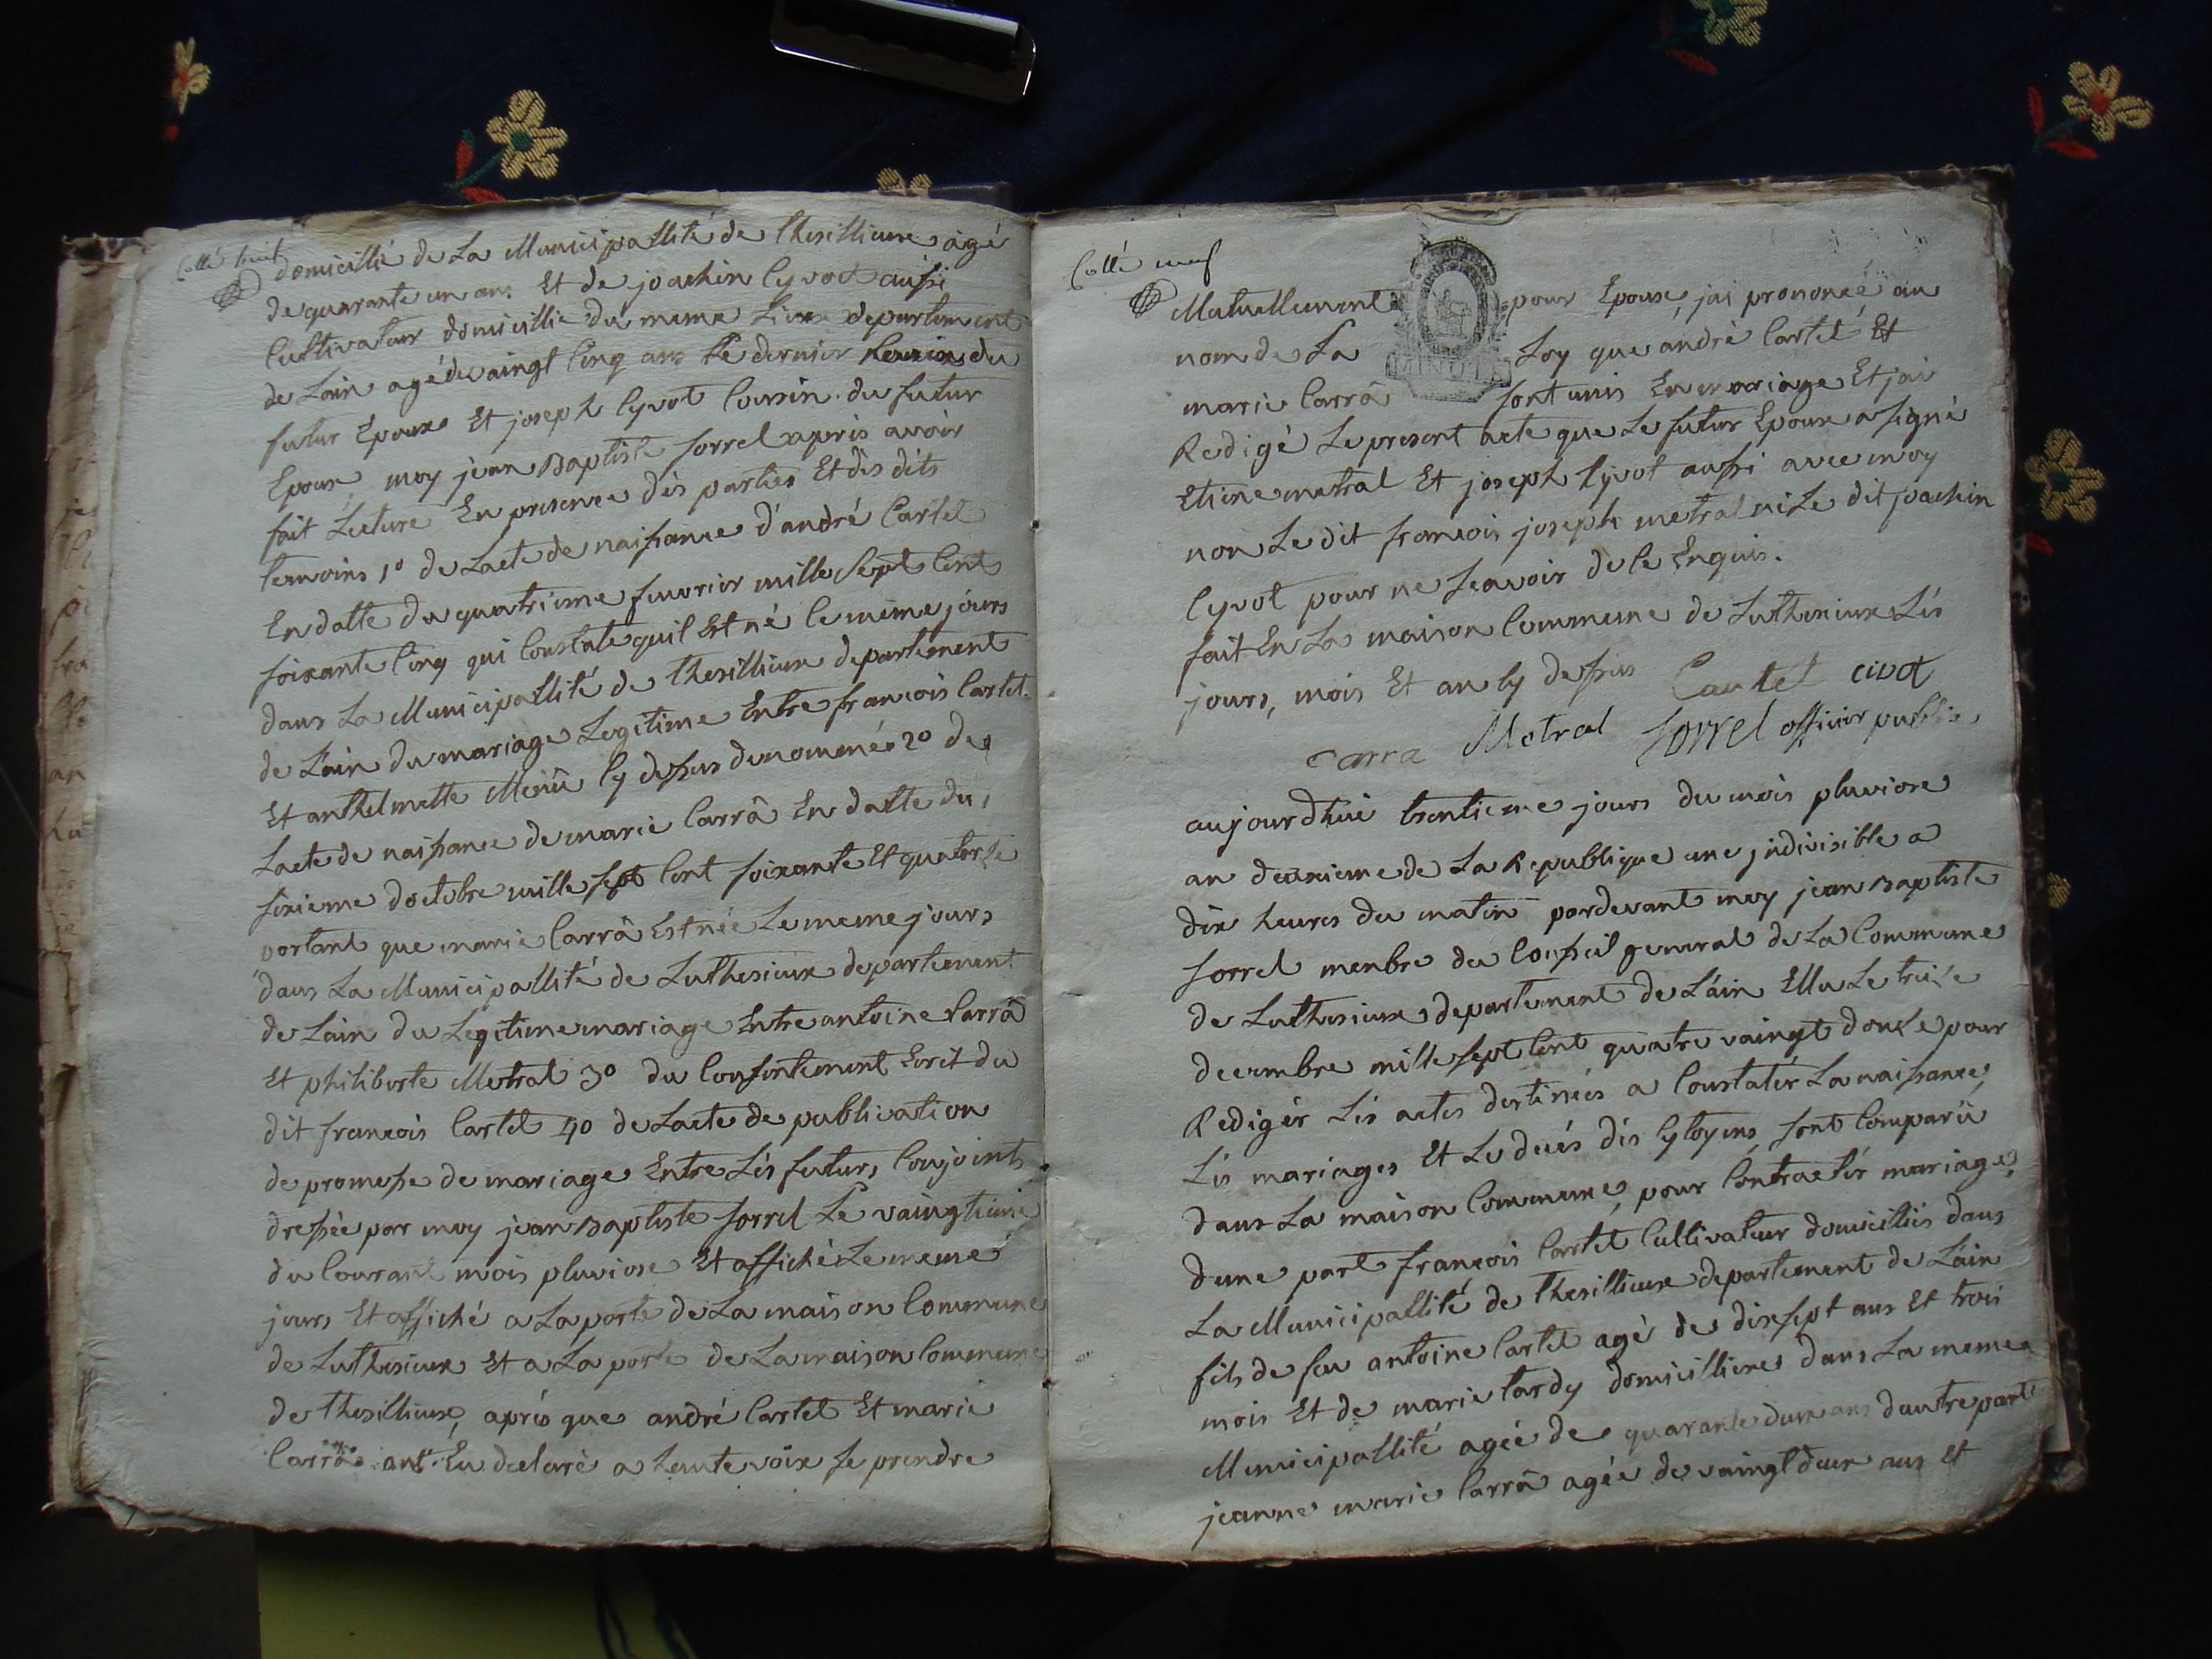 Collé huit
domicillié de La Municipallité de thesillieux agé
de quarante un ans Et de joachin Cyvot aussi
Cultivateur domicillié du meme Lieux departement
de Lain agé de vaingt Cinq ans Le dernier du
futur Epoux Et joseph Cyvot Cousin du futur
Epoux, moy jean Baptiste Sorrel apris avoir
fait Lecture En presence dès parties Et dès dits
temoins 1º de Lacte de naissance d'andrè Cartel
En datte du quatrieme fevrier mille Sept Cent
soixante Cinq qui Constate quil Est né le même jours
dans La Municipallité de thesillieux departement
de Lain du mariage Legitime Entre francois Cartel
Et anthelmette Cy dessus denommés 2º de
Lacte de naissance de marie Carrâ En datte du
sixieme doctobre mille sept Cent soixante Et quatorse
portant que marie Carrâ Est née Le meme jours
dans La Municipallité de Luthesieux departement
de Lain du Legitime mariage Entre antoine Carrâ
Et philiberte Metral 3º du Consentement Ecrit du
dit francois Cartel 4º de Lacte de publication
de promesse de mariage Entre Lès futurs Conjoints
dressée par moy jean Baptiste Sorrel Le vaingtieme
du Courant mois pluviose Et affiché Le meme
jours Et affiché a La porte de La maison Commune
de Luthesieux Et a La porte de La maison Commune
de thesillieux, aprés que andrè Cartel Et marie
Carrâ ont Eu declarè a haute voix se prendre
Collé neuf
Mutuellement pour Epoux, jai prononcé au
nom de La Loy que andrè Cartel Et
MINUTE
marie Carrâ sont unis En mariage Et jai
Redigé Le present acte que Le futur Epoux a signé
Etiene metral Et joseph Cyvot aussi avec moy
non Le dit francois joseph metral ni Le dit joachin
Cyvot pour ne sçavoir de ce Enquis.
fait En La maison Commune de Luthesieux Lès
jours, mois Et an Cy dessus Cartel civot
carra Metral Sorrel officier public
aujourdhui trentieme jours du mois pluviose
an deuxieme de La Republique une jndivisible a
dix heures du matin pardevant moy jean Baptiste
Sorrel menbre du Conseil general de La Commune
de Luthesieux departement de Lain Ellu Le treise
decembre mille sept Cent quatre vaingt douse pour
Redigèr Lès actes destinées a Constatèr La naissance,
Lès mariages Et Le decés dès Cytoyens sont Comparû
dans La maison Commune, pour Contractèr mariage,
dune part francois Cartel Cultivateur domicilliès dans
La Municipallité de thesillieux departement de Lain
fils de feu antoine Cartel agè de dix sept ans Et trois
mois Et de marie tardy domicilliere dans La meme
Municipallité agée de quarante deux ans dautre part
jeanne marie Carrâ agée de vaingt deux ans Et